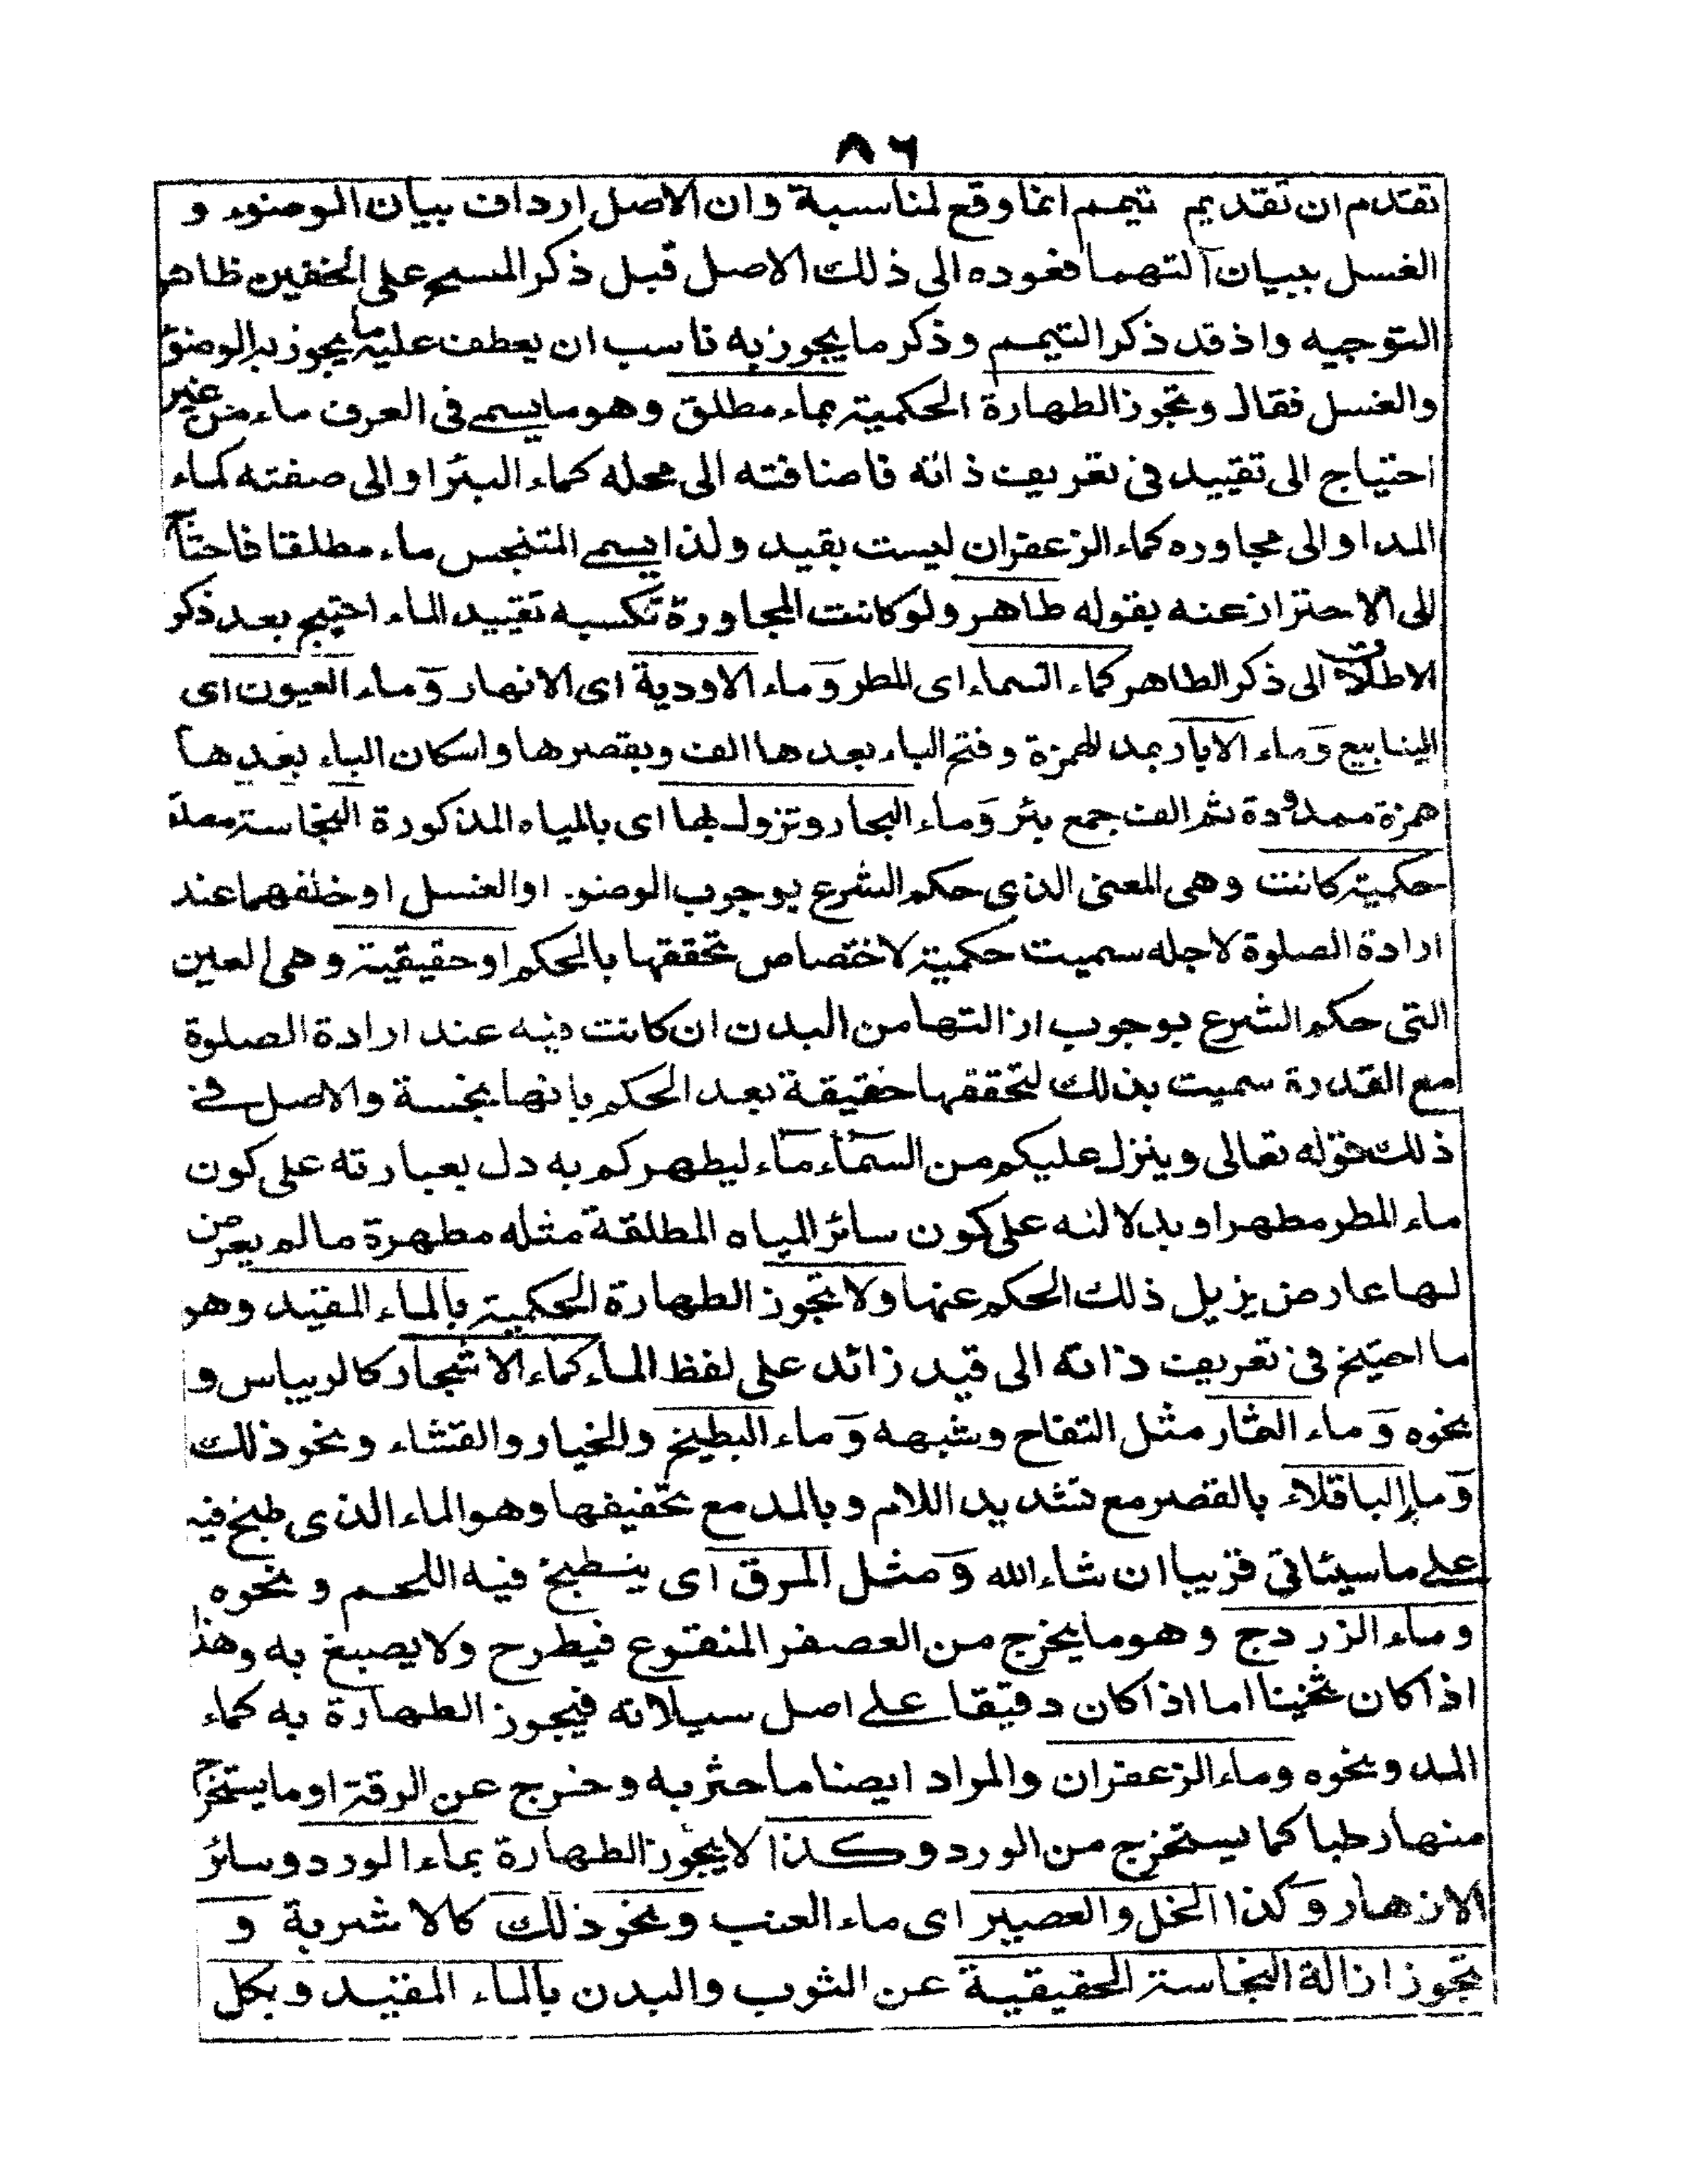 ٨٦
تقدم ان تقديم تيمم انما وقع لمناسبة وان الاصل ارداف بيان الوضوء و
الغسل ببيان آلتهما فعوده الى ذلك الاصل قبل ذكر المسح على الخفين ظاهر
التوجيه واذ قد ذكر التيمم وذكر ما يجوز به ناسب ان يعطف عليه ما يجوز به الوضوء
والغسل فقال وتجوز الطهارة الحكمية بماء مطلق وهو ما يسمى فى العرف ماء من غير
احتياج الى تقييد فى تعريف ذاته فاضافته الى محله كماء البئر او الى صفته كماء
المد او الى مجاوره كماء الزعفران ليست بقيد ولذا يسمى المتنجس ماء مطلقا فاحتاج
الى الاحتراز عنه بقوله طاهر ولو كانت المجاورة تكسبه تقييد الماء احتيج بعد ذكر
الاطلاق الى ذكر الطاهر كماء السماء اى المطر وماء الاودية اى الانهار وماء العيون اى
الينابيع وماء الآبار بمد الهمزة وفتح الباء بعدها الف وبقصرها واسكان الباء بعدها
همزة ممدودة ثم الف جمع بئر وماء البحار وتزول بها اى بالمياه المذكورة النجاسة
حكمية كانت وهى المعنى الذى حكم الشرع بوجوب الوضوء او الغسل او خلفهما عند
ارادة الصلوة لاجله سميت حكمية لاختصاص تحققها بالحكم او حقيقية وهى العين
التى حكم الشرع بوجوب ازالتها من البدن ان كانت فيه عند ارادة الصلوة
مع القدرة سميت بذلك لتحققها حقيقة بعد الحكم بانها نجسة والاصل فى
ذلك قوله تعالى وينزل عليكم من السماء ماء ليطهركم به دل بعبارته على كون
ماء المطر مطهرا وبدلالته على كون سائر المياه المطلقة مثله مطهرة ما لم يعرض
لها عارض يزيل ذلك الحكم عنها ولا تجوز الطهارة الحكمية بالماء المقيد وهو
ما احتيج فى تعريف ذاته الى قيد زائد على لفظ الماء كماء الاشجار كالريباس و
نحوه وماء الثمار مثل التفاح وشبهه وماء البطيخ والخيار والقثاء ونحو ذلك
وماء الباقلاء بالقصر مع تشديد اللام وبالمد مع تخفيفها وهو الماء الذى طبخ فيه
على ما سيئاتى قريبا ان شاء الله ومثل المرق اى ينطبخ فيه اللحم ونحوه
وماء الزردج وهو ما يخرج من العصفر المنقوع فيطرح ولا يصبغ به وهذا
اذا كان ثخينا اما اذا كان دقيقا على اصل سيلانه فيجوز الطهارة به كماء
المد ونحوه وماء الزعفران والمراد ايضا ما خثر به وخرج عن الرقة او ما يستخرج
منها رطبا كما يستخرج من الورد وكذا لا يجوز الطهارة بماء الورد وسائر
الازهار وكذا الخل والعصير اى ماء العنب ونحو ذلك كالاشربة و
تجوز ازالة النجاسة الحقيقية عن الثوب والبدن بالماء المقيد وبكل